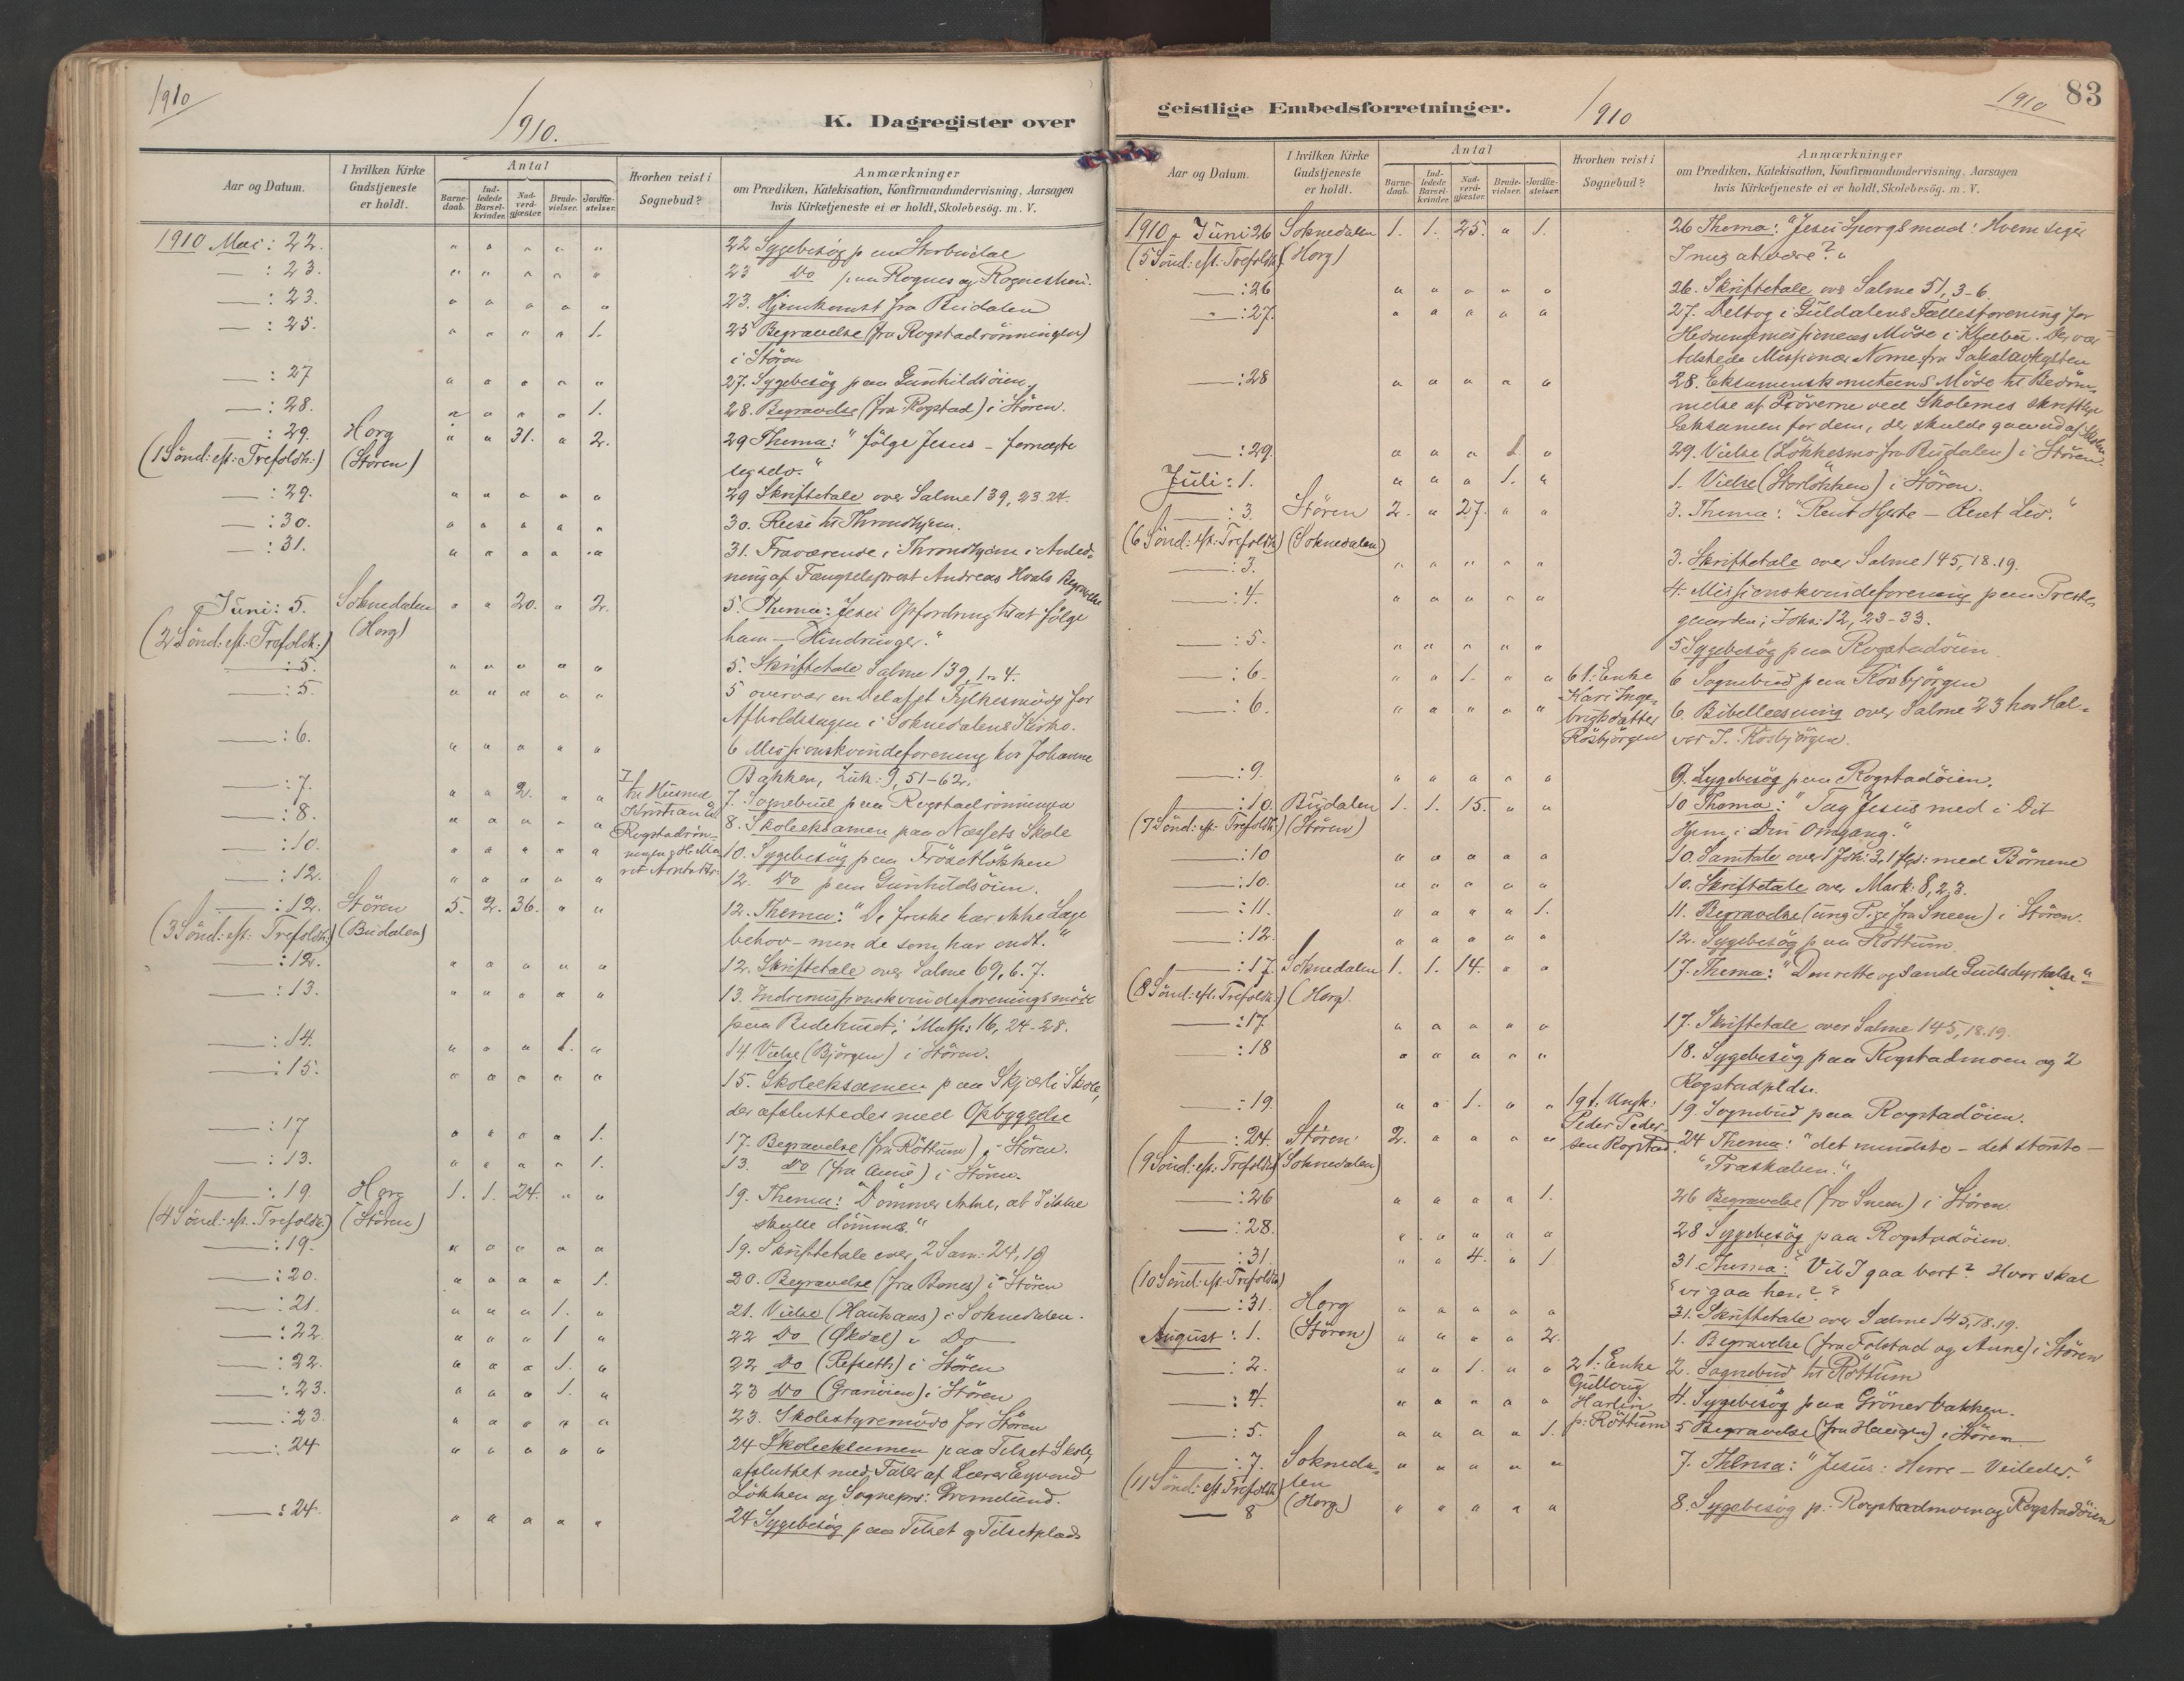 1910
1910.
K. Dagregister over
Aar og Datum.
I hvilken Kirke Gudstjeneste er holdt.
Antal
Barne-daab.
Ind-ledede Barsel-kvinder.
Nad-verd-gjæster.
Brude-vielser.
Jordfæ-stelser.
Hvorhen reist i Sognebud?
Anmærkninger
om Prædiken, Katekisation, Konfirmandundervisning, Aarsagen
hvis Kirketjeneste ei er holdt, Skolebesög. m. V.
1910 Mai: 22. " " " " " 22 Sygebesög paa Storbudal
— : 23. " " " " " 23 Do paa Rognes og Rogneshaug.
— : 23. " " " " " 23. Hjemkomst fra Budalen
— : 25. " " " " 1. 25 Begravelse (fra Rogstadrönningen)
i Stören
— : 27 " " " " " 27. Sygebesög paa Gunhildsöien
— : 28. " " " " 1. 28. Begravelse (fra Rogstad) i Stören.
— : 29. Horg " " 31. " 2. 29 Thema: "Fölge Jesus – fornegte
(1 Sönd: eft: Trefoldh:) (Stören) seg selv."
— : 29. " " " " " 29 Skriftetale over Salme 139, 23.24.
— : 30. " " " " " 30. Reise til Throndhjem.
— : 31. " " " " " 31. Fraværende i Throndhjem i Anled-
ning af Fængselsprest Andreas Hvals Begravelse
Juni: 5. Soknedalen " " 20. " 2. 5. Thema: Jesu Opfordring til at fölge
(2 Sönd: eft: Trefoldh:) (Horg) ham — Hindringer."
— : 5. " " " " " 5. Skriftetale Salme 139, 1-4.
— : 5. " " " " " 5 overvær en Del af Fylkesmöde for
Afholdssagen i Soknedalens Kirke.
— : 6. " " " " " 6 Missionskvindeforening hos Johanne
Bakken, Luk: 9, 51-62.
— : 7. " " 2. " " 7. Sognebud paa Rogstadrönningen
— : 8. " " " " " 8. Skoleeksamen paa Næsets Skole
— : 10. " " " " " 10. Sygebesög paa Frösetlökken
— : 12. " " " " " 12. Do paa Gunhildsöien.
— : 12. Stören 5. 2. 36. " " 12. Thema: "De friske har ikke Læge
(3 Sönd: eft: Trefoldh:) (Budalen) behov – men de som har ondt."
— : 12. " " " " " 12. Skriftetale over Salme 69, 6.7.
— : 13. " " " " " 13. Indremissionskvindeforeningsmöde
paa Bedehuset; Matth: 16, 24-28.
— : 14. " " " 1. " 14 Vielse (Björgen) i Stören.
— : 15. " " " " " 15. Skoleeksamen paa Skjærli Skole,
der afsluttedes med Opbyggelse
— : 17 " " " " 1. 17. Begravelse (fra Röttum) i Stören.
— : 13. " " " " 1. 13. Do (fra Aune) i Stören.
— : 19. Horg 1. 1. 24. " " 19. Thema: "Dömmer ikke, at I ikke
(4 Sönd: eft: Trefoldh:) (Stören) skulle dömmes."
— : 19. " " " " " 19. Skriftetale over 2 Sam: 24, 10
— : 20. " " " " 1. 20. Begravelse (fra Bones) i Stören
— : 21. " " " 1. " 21. Vielse (Haukaas) i Soknedalen.
— : 22. " " " 1 " 22 Do (Økdal) " Do
— : 22. " " " 1. " 22 Do (Refseth) i Stören
— : 23. " " " 1. " 23 Do (Granöien) i Stören
— : 23. " " " " " 23. Skolestyremöde for Stören
— : 24 " " " " " 24 Skoleeksamen paa Tilset Skole,
afsluttet med Taler af Lærer Eyvind
Lökken og Sognepr:
— : 24. " " " " " 24 Sygebesög paa Tilset og Tilsetplads
geistlige Embedsforretninger.
1910
1910
83
Aar og Datum.
I hvilken Kirke Gudstjeneste er holdt.
Antal
Barne-daab.
Ind-ledede Barsel-kvinder.
Nad-verd-gjæster.
Brude-vielser.
Jordfæ-stelser.
Hvorhen reist i Sognebud?
Anmærkninger
om Prædiken, Katekisation, Konfirmandundervisning, Aarsagen
hvis Kirketjeneste ei er holdt, Skolebesög. m. V.
1910 Juni 26 Soknedalen 1. 1. 25. " 1. 26 Thema: "Jesu Spörgsmaal: Hvem siger
(5 Sönd: eft: Trefoldh:) (Horg) I mig at være?"
— : 26 " " " " " 26. Skriftetale over Salme 51, 3-6.
— : 27. " " " " " 27. Deltog i Guldalens Fællesforening for
Hedningemissionens Möde i Klæbu. Der var
tilstede Missionær Nome fra Sakalavkysten
— : 28 " " " " " 28. Eksamenskomiteens Möde til Bedöm-
melse af Pröverne ved Skolernes skriftlige
Eksamen for dem, der skulde gaa ud af Skolen
— : 29. " " " 1 " 29. Vielse (Lökkesmo fra Budalen) i Stören.
Juli: 1. " " " 1. " 1. Vielse (Storlökken) i Stören.
— : 3. Stören 2. " 27. " " 3. Thema: "Rent Hjerte – Rent Lev."
(6 Sönd: eft: Trefoldh:) (Soknedalen)
— : 3. " " " " " 3. Skriftetale over Salme 145, 18.19.
— : 4. " " " " " 4. Missionskvindeforening paa Preste-
gaarden; Joh: 12, 23-33.
— : 5. " " " " " 5 Sygebesög paa Rogstadöien
— : 6. " " 1. " " 6 1: Enke Kari Inge-brigtsdatter Rösbjörgen 6 Sognebud paa Rösbjörgen
— : 6. " " " " " 6. Bibellæsning over Salme 23 hos Hal-
vor J. Rösbjörgen.
— : 9. " " " " " 9. Sygebesög paa Rogstadöien.
— : 10. Budalen 1. 1. 15. " " 10 Thema: "Tag Jesus med i Dit
(7 Sönd: eft: Trefoldh:) (Stören) Hjem i Din Omgang."
— : 10 " " " " " 10. Samtale over 1 Joh: 3, 1 flg: med Börnene
— : 10. " " " " " 10. Skriftetale over Mark: 8, 2, 3.
— : 11. " " " " 1. 11. Begravelse (ung Pige fra Sneen) i Stören.
— : 12. " " " " " 12. Sygebesög paa Röttum
— : 17. Soknedalen 1. 1. 14. " " 17. Thema: "Den rette og sande Gudsdyrkelse"
(8 Sönd: eft: Trefoldh:) (Horg).
— : 17. " " " " " 17. Skriftetale over Salme 145, 18.19.
— : 18 " " " " " 18. Sygebesög paa Rogstadmoen og 2
Rogstadpldse.
— : 19. " " 1. " " 19 1: Ungk: Peder Peder-sen Rogstad. 19. Sognebud paa Rogstadöien.
— : 24. Stören 2. " " " " 24 Thema: "det mindste – det störste –
(9 Sönd: eft: Trefoldh:) (Soknedalen)
— : 26 " " " " 1. 26 Begravelse (fra Sneen) i Stören.
— : 28. " " " " " 28 Sygebesög paa Rogstadöien.
— : 31. " " 4. " 1. 31. Thema: "Vil I gaa bort? Hvor skal
(10 Sönd: eft: Trefoldh:) vi gaa hen?"
— : 31. Horg " " " " " 31. Skriftetale over Salme 145, 18.19.
August: 1. (Stören) " " " " 2. 1. Begravelse (fra Folstad og Aune) i Stören
— : 2. " " 1. " " 2 1: Enke Gullaug Harlin p: Röttum 2. Sognebud til Röttum
— : 4. " " " " " 4. Sygebesög paa Grönerbakken.
— : 5. " " " " 1. 5 Begravelse (fra Haugen) i Stören
— : 7. Sokneda-len " " " " " 7. Thema: "Jesus: Herre – Veileder."
(11 Sönd: eft: Trefoldh:) (Horg)
— 8 " " " " " 8. Sygebesög p: Rogstadmoen og Rogstadöien